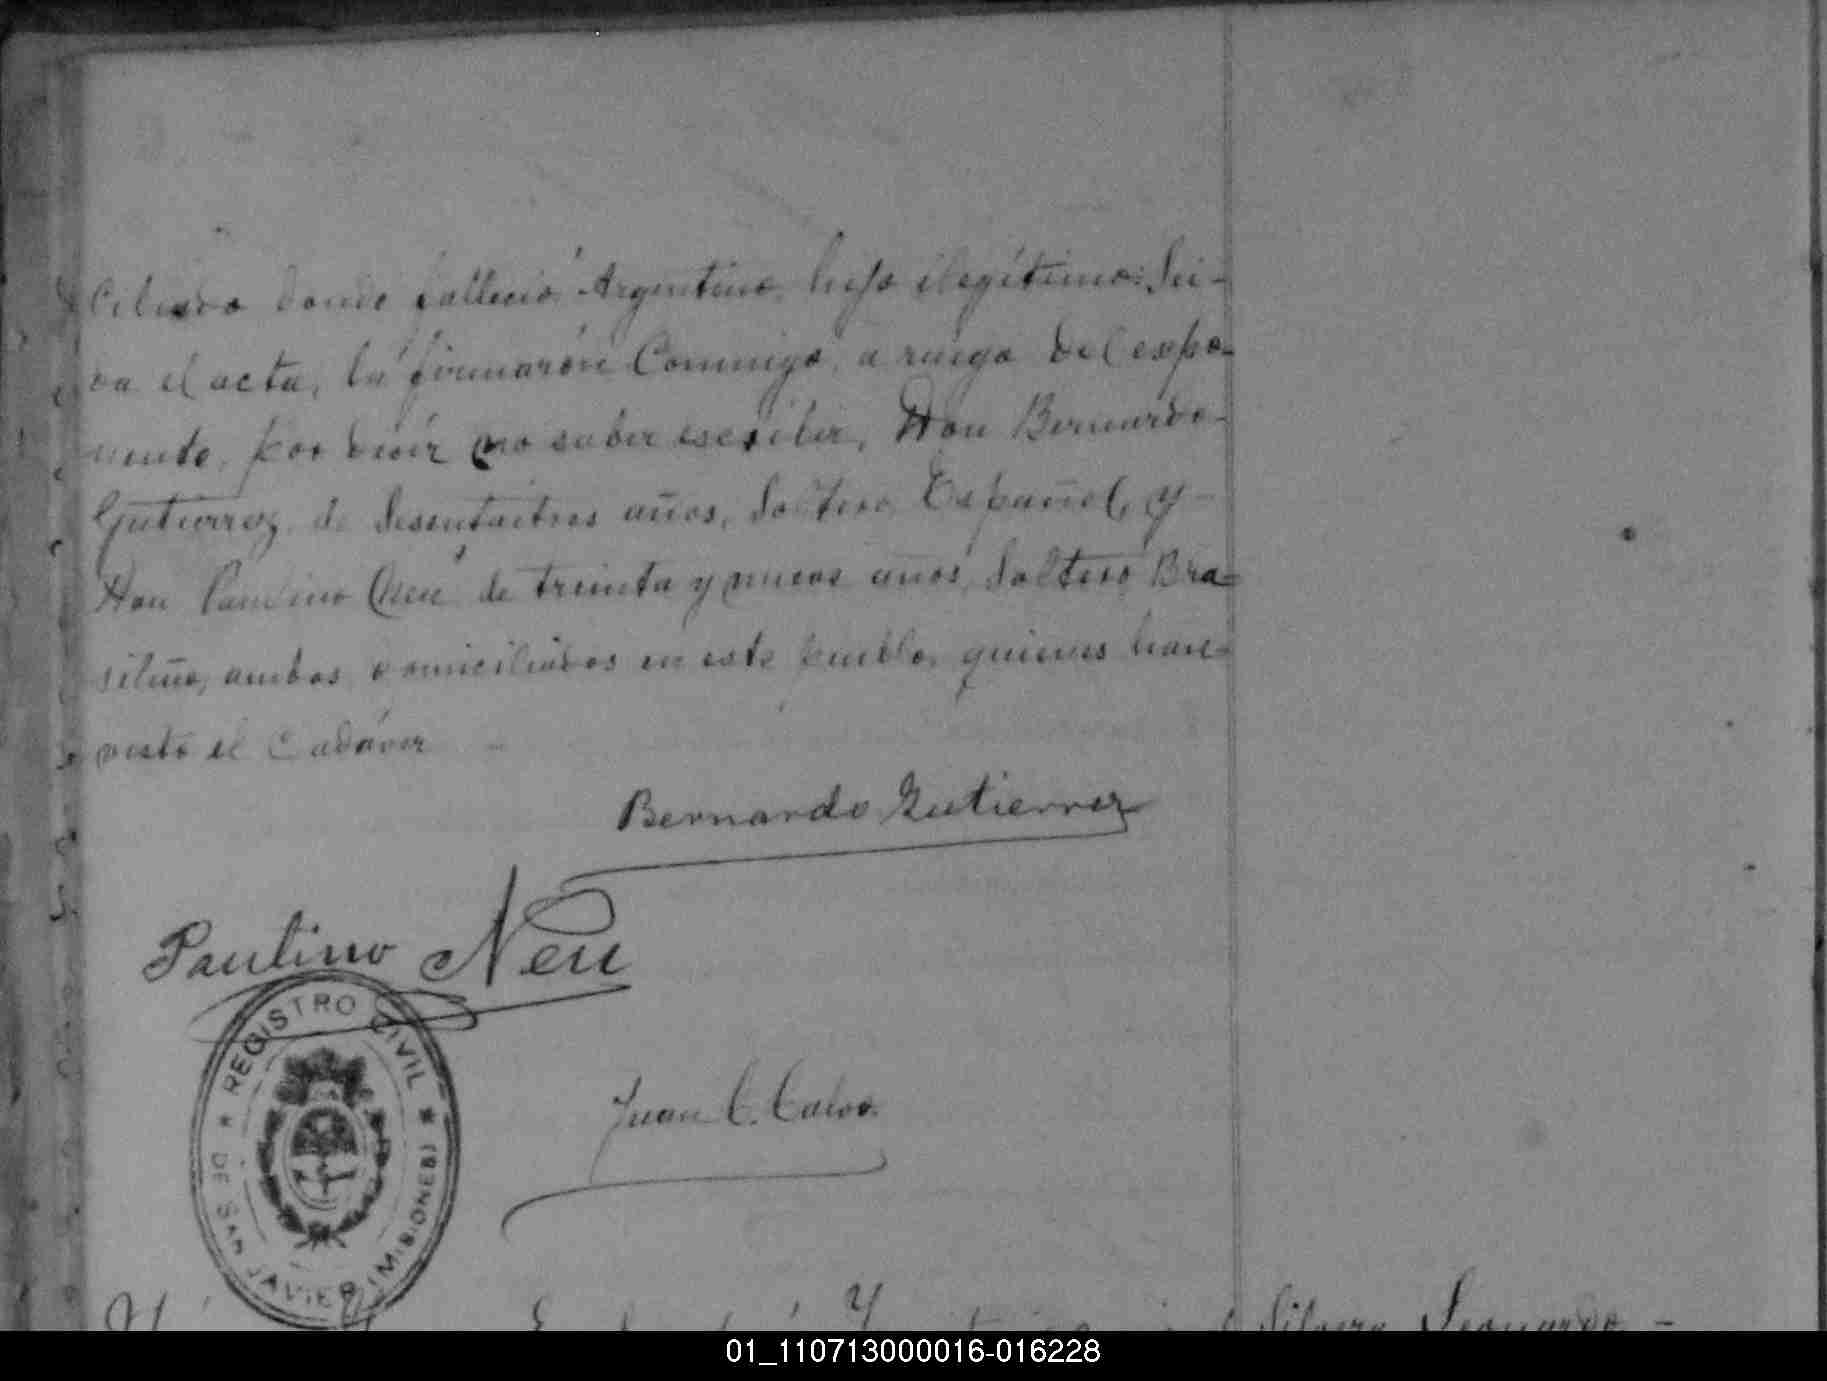 ciliado donde falleció, Argentino, hijo ilegítimo: Lei-
da el acta, la firmaron Conmigo, a ruego del expo-
nente, por decir no saber escribir, Don Bernardo-
Gutierrez, de Sesentaitres años, Soltero, Español, y-
Don Paulino Neu de treinta y nueve años, Soltero, Bra-
sileño, ambos domiciliados en este pueblo, quienes han-
visto el Cadáver -
Bernardo Gutierrez
Paulino Neu
REGISTRO CIVIL
DE SAN JAVIER (MISIONES)
Juan C. Calvo.
Silvero Leonardo -
01_110713000016-016228